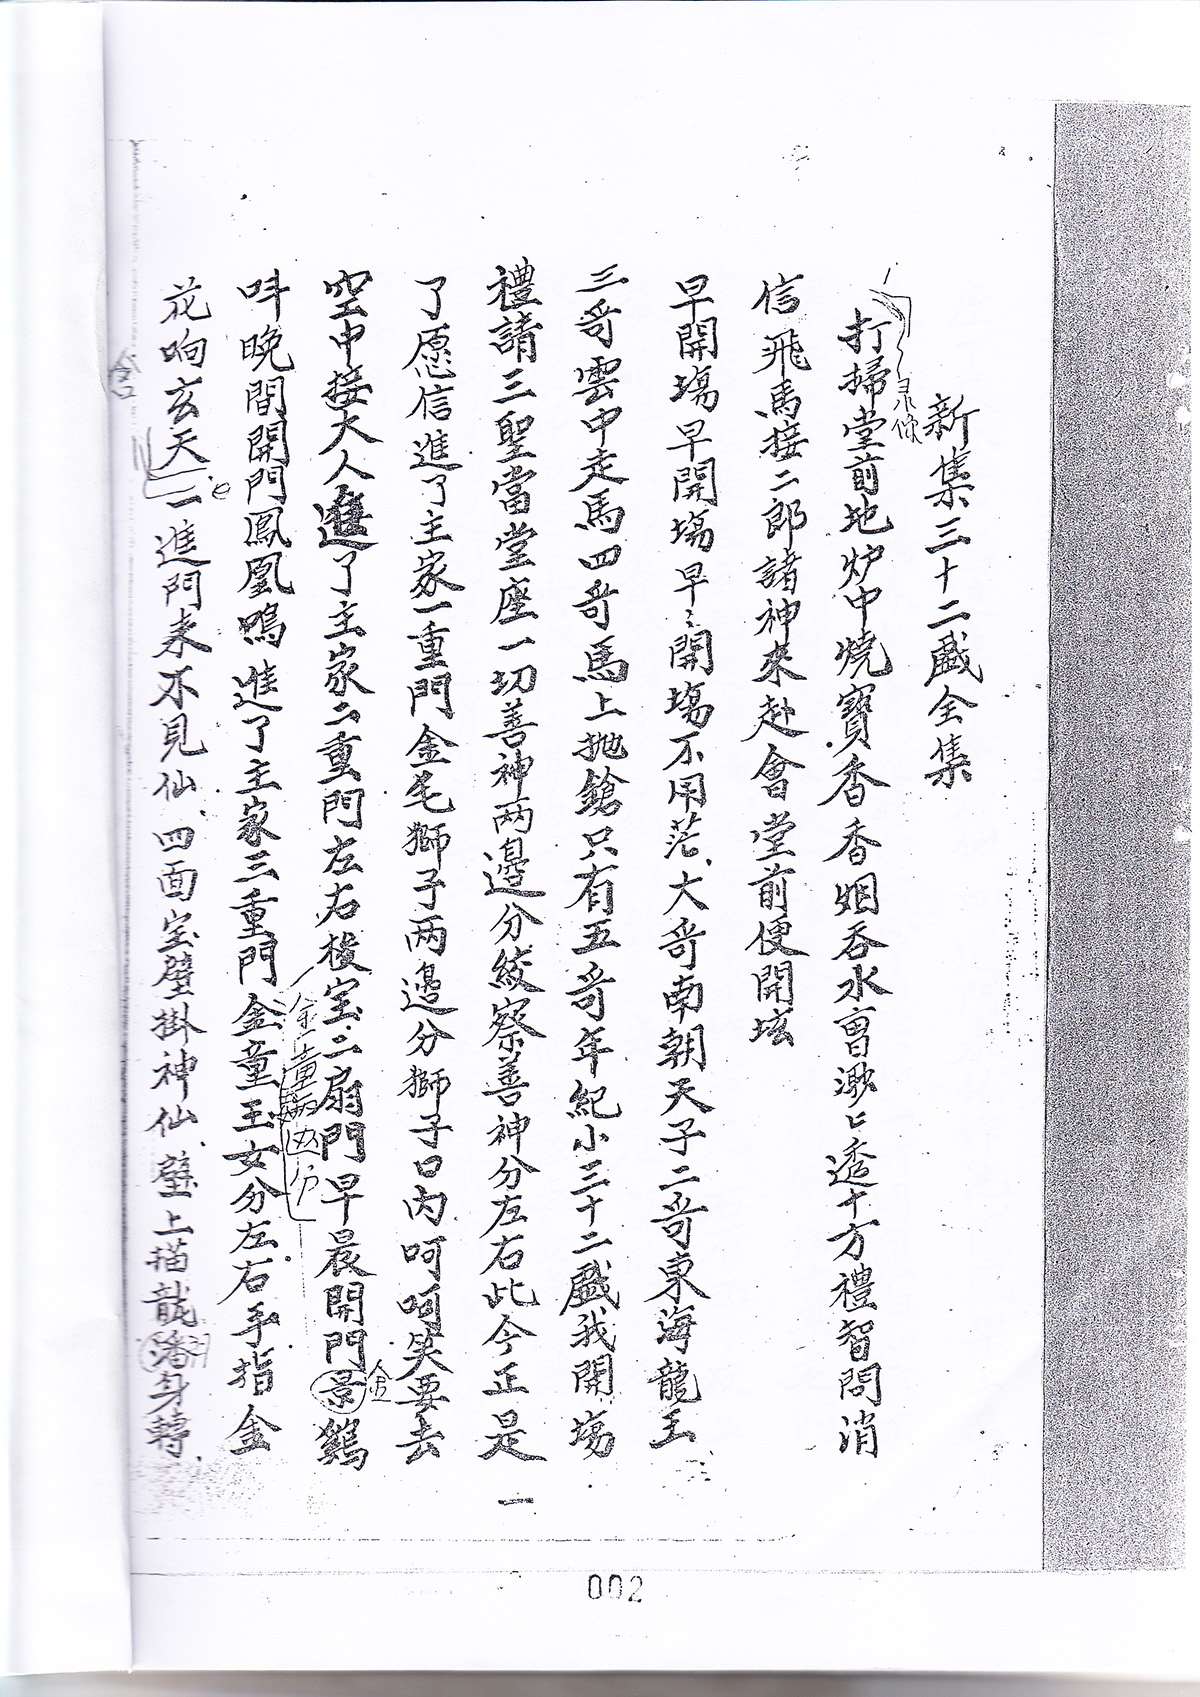 新集三十二戲全集
打掃堂前地炉中燒寶香香烟吞水㑹渺〻透十方禮智問消
信飛馬接二郎諸神來赴會堂前便開坛
早開塲早開塲早〻開塲不用茫大哥南朝天子二哥東海龍王
三哥雲中走馬四哥馬上抛鎗只有五哥年紀小三十二戲我開塲
禮請三聖當堂座一切善神两邉分絞察善神分左右此今正是
了愿信進了主家一重門金毛獅子两邉分獅子口内呵呵笑要去
空中接大人進了主家二重門左右梭宝二扇門早晨開門景鷄
呌晚間開門鳳凰鳴進了主家三重門金童玉女分左右手指金
花响玄天一進門来不見仙四面宝壁掛神仙壁上描龍潘身轉
金童两边分
金
一
002